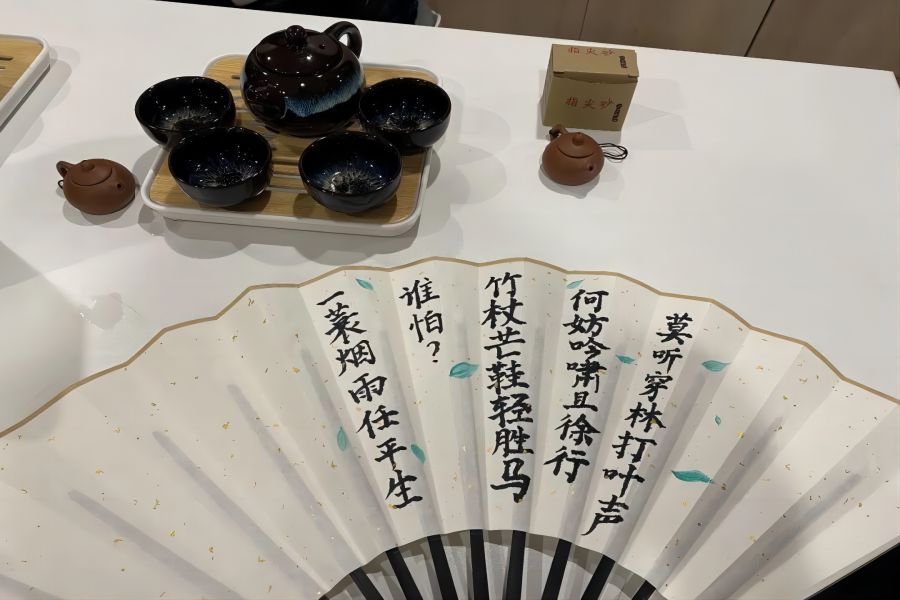 莫听穿林打叶声
何妨吟啸且徐行
竹杖芒鞋轻胜马
谁怕?
一蓑烟雨任平生
指尖沙
指尖沙